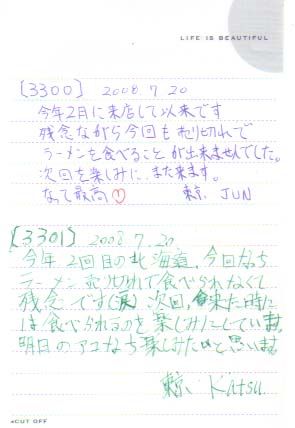 LIFE IS BEAUTIFUL
[3300] 2008.7.20
今年2月に来店して以来です
残念ながら今回も売り切れで
ラーメンを食べることが出来ませんでした。
次回を楽しみに、また来ます。
なって最高♡ 東京 JUN
[3301] 2008.7.20
今年2回目の北海道、今回なち
ラーメン売り切れで食べられなくて
残念です(涙) 次回、来た時に
は食べられるのを楽しみにしています。
明日の なち楽しみたいと思います。
東京 Katsu.
◂CUT OFF